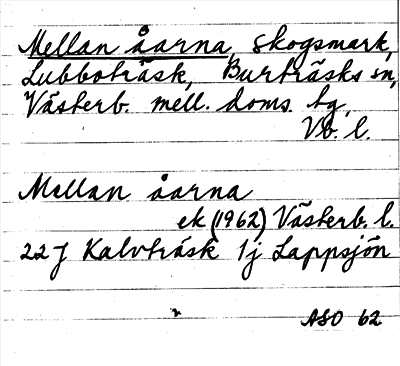 Mellan åarna, skogsmark,
Lubboträsk, Burträsks sn,
Västerb. mell. doms. tg,
Vb. l.
Mellan åarna
ek (1962) Västerb. l.
22 J Kalvträsk 1j Lappsjön
ASO 62